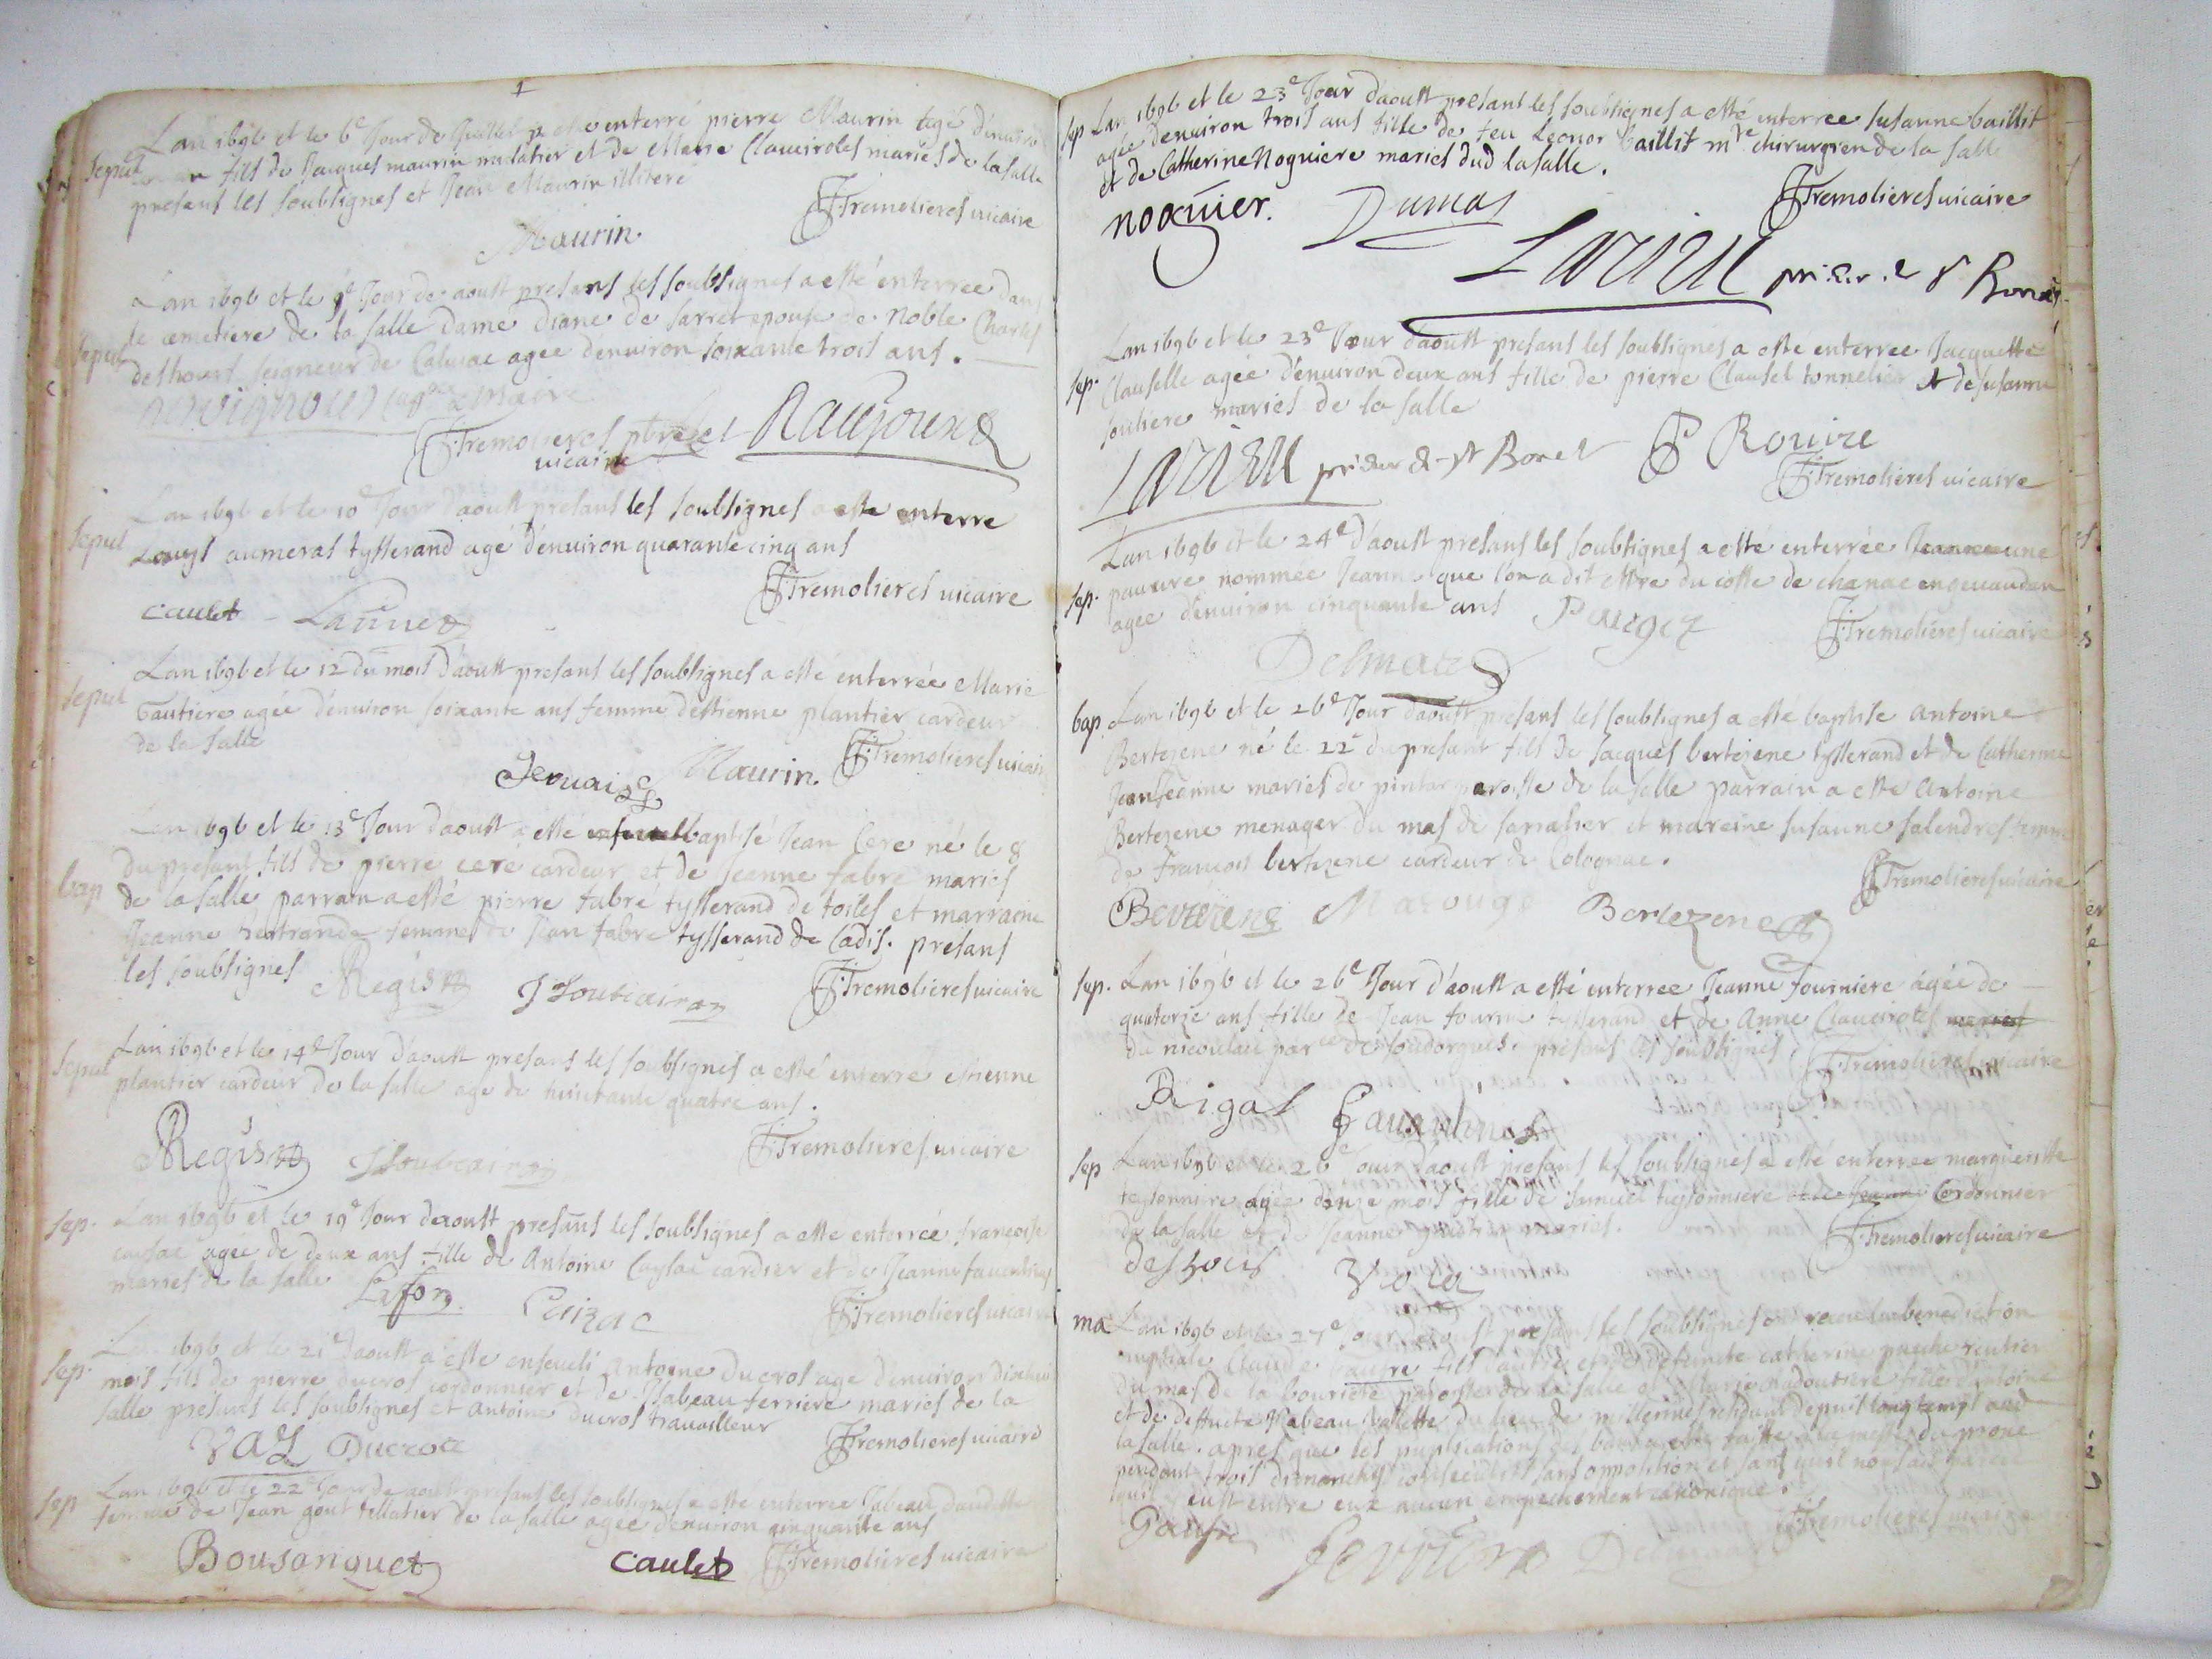 Lan 1696 et le 6e Jour de Juillet a esté enterré pierre Maurin agé d'environ
Sepul
fils de Jacques maurin mulatier et de Marie Claveiroles mariés de la salle
presans les soubsignes et Jean Maurin illiteré
Maurin
JTremolieres vicaire
Lan 1696 et le 9e Jour de aoust presans les soubsignes a esté enterree dans
le cemetiere de la salle dame diane de sarret epouse de Noble Charles
Sepul
deshours seigneur de Calviac agee denviron soixante trois ans.
maire
JTremolieres ptre et
vicaire
Lan 1696 et le 10e Jour d'aoust presans les soubsignes a esté enterre
Sepul
Louys aumeras tysserand agé d'environ quarante cinq ans
JTremolieres vicaire
Caulet Launes
Lan 1696 et le 12 du mois d'aoust presans les soubsignes a esté enterrée Marie
Sepul
Gautiere agée d'environ soixante ans femme d'estienne plantier cardeur
de la salle
Gervais Maurin.
JTremolieres vicaire
Lan 1696 et le 13e Jour d'aoust a esté baptisé Jean Cere né le 8
du presant fils de pierre cere cardeur et de Jeanne fabre mariés
bap
de la salle parrain a esté pierre fabré tysserand de toiles et marraine
Jeanne bertrande femme de Jean fabre tysserand de Cadis. presans
les soubsignes
Regis JSoubeiran
JTremolieres vicaire
Lan 1696 et le 14e Jour d'aoust presans les soubsignes a esté enterre estienne
Sepul
plantier cardeur de la salle agé de huictante quatre ans.
JTremolieres vicaire
Regis JSoubeiran
Sep. Lan 1696 et le 19e Jour de aoust presans les soubsignes a esté enterrée francoise
agée de deux ans fille de Antoine Caysac cardier et de Jeanne
mariés de la salle
Lafon Caizac
JTremolieres vicaire
Lan 1696 et le 21e d'aoust a esté enseveli Antoine Ducros agé d'environ dixhuit
Sep.
mois fils de pierre ducros cordonnier et de Isabeau ferriere mariés de la
salle presans les soubsignes et antoine ducros travailleur
JTremolieres vicaire
Lan 1696 et le 22e Jour de aoust presans les soubsignes a esté enterree Isabeau
sep
femme de Jean gout de la salle agée denviron cinquante ans
Bousanquet Caulet
JTremolieres vicaire
sep Lan 1696 et le 23e Jour d'aoust presant les soubsignes a esté enterrée Susanne baillit
agée denviron trois ans fille de feu Leonor baillit me chirurgien de la salle
et de Catherine Noguiere mariés dud lasalle.
JTremolieres vicaire
noguier. Dumas
prieur de st Bonet
Lan 1696 et le 23e Jour d'aoust presans les soubsignés a esté enterree Jacquette
sep.
Clauselle agée d'environ deux ans fille de pierre Clausel tonnelier et de susanne
souliere mariés de la salle
prieur de st Bonet P Rouire
JTremolieres vicaire
Lan 1696 et le 24e d'aoust presans les soubsignes a esté enterrée Jeanne une
sep.
pauvre nommée Jeanne que lon a dit estre du costé de chanac en gevaudan
agee d'environ cinquante ans
JTremolieres vicaire
bap Lan 1696 et le 26e Jour d'aoust presans les soubsignes a esté baptise Antoine
Bertezene né le 22e du presant fils de Jacques bertezene tysserand et de Catherine
Jeanjeanne mariés de pintar paroisse de la salle parrain a esté Antoine
Bertezene menager du mas de et mareine susanne salendres femme
de francois bertezene cardeur de Colognac.
JTremolieres vicaire
Bertezene
sep. Lan 1696 et le 26e Jour d'aoust a esté enterree Jeanne fourniere agée de
quatorze ans fille de Jean fournie tysserand et de Anne Claveiroles mariés
du parce de soudorgues. presans les soubsignes.
JTremolieres vicaire
Rigal
sep Lan 1696 et le 26e Jour d'aoust presans les soubsignes a esté enterree margueritte
teissonniere agée donze mois fille de Samuel teissonniere cordonnier
de la salle et de Jeanne mariés.
JTremolieres vicaire
Deshours
ma Lan 1696 et le 27e Jour d'aoust presans les soubsignés ont receu la benediction
nuptiale Claude fils et de defuncte catherine
du mas de la paroisse de la salle et Marie fille d'antoine
et de deffuncte Isabeau Vallette du lieu de residant depuis longtemps aud
lasalle. apres que les publications des bans a esté faitte a la messe du prone
pendant trois dimanches consecutifs sans opposition et sans
quil y eust entre eux aucun empechement canonique.
JTremolieres vicaire